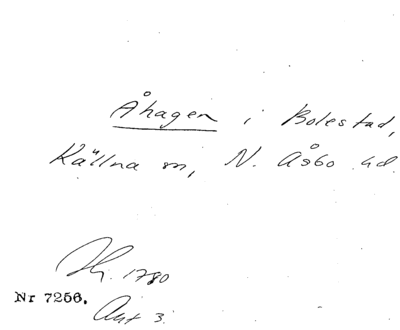 Åhagen i Bolestad,
Källna sn, N. Åsbo hd.
1780
Nr 7256.
Akt 3.